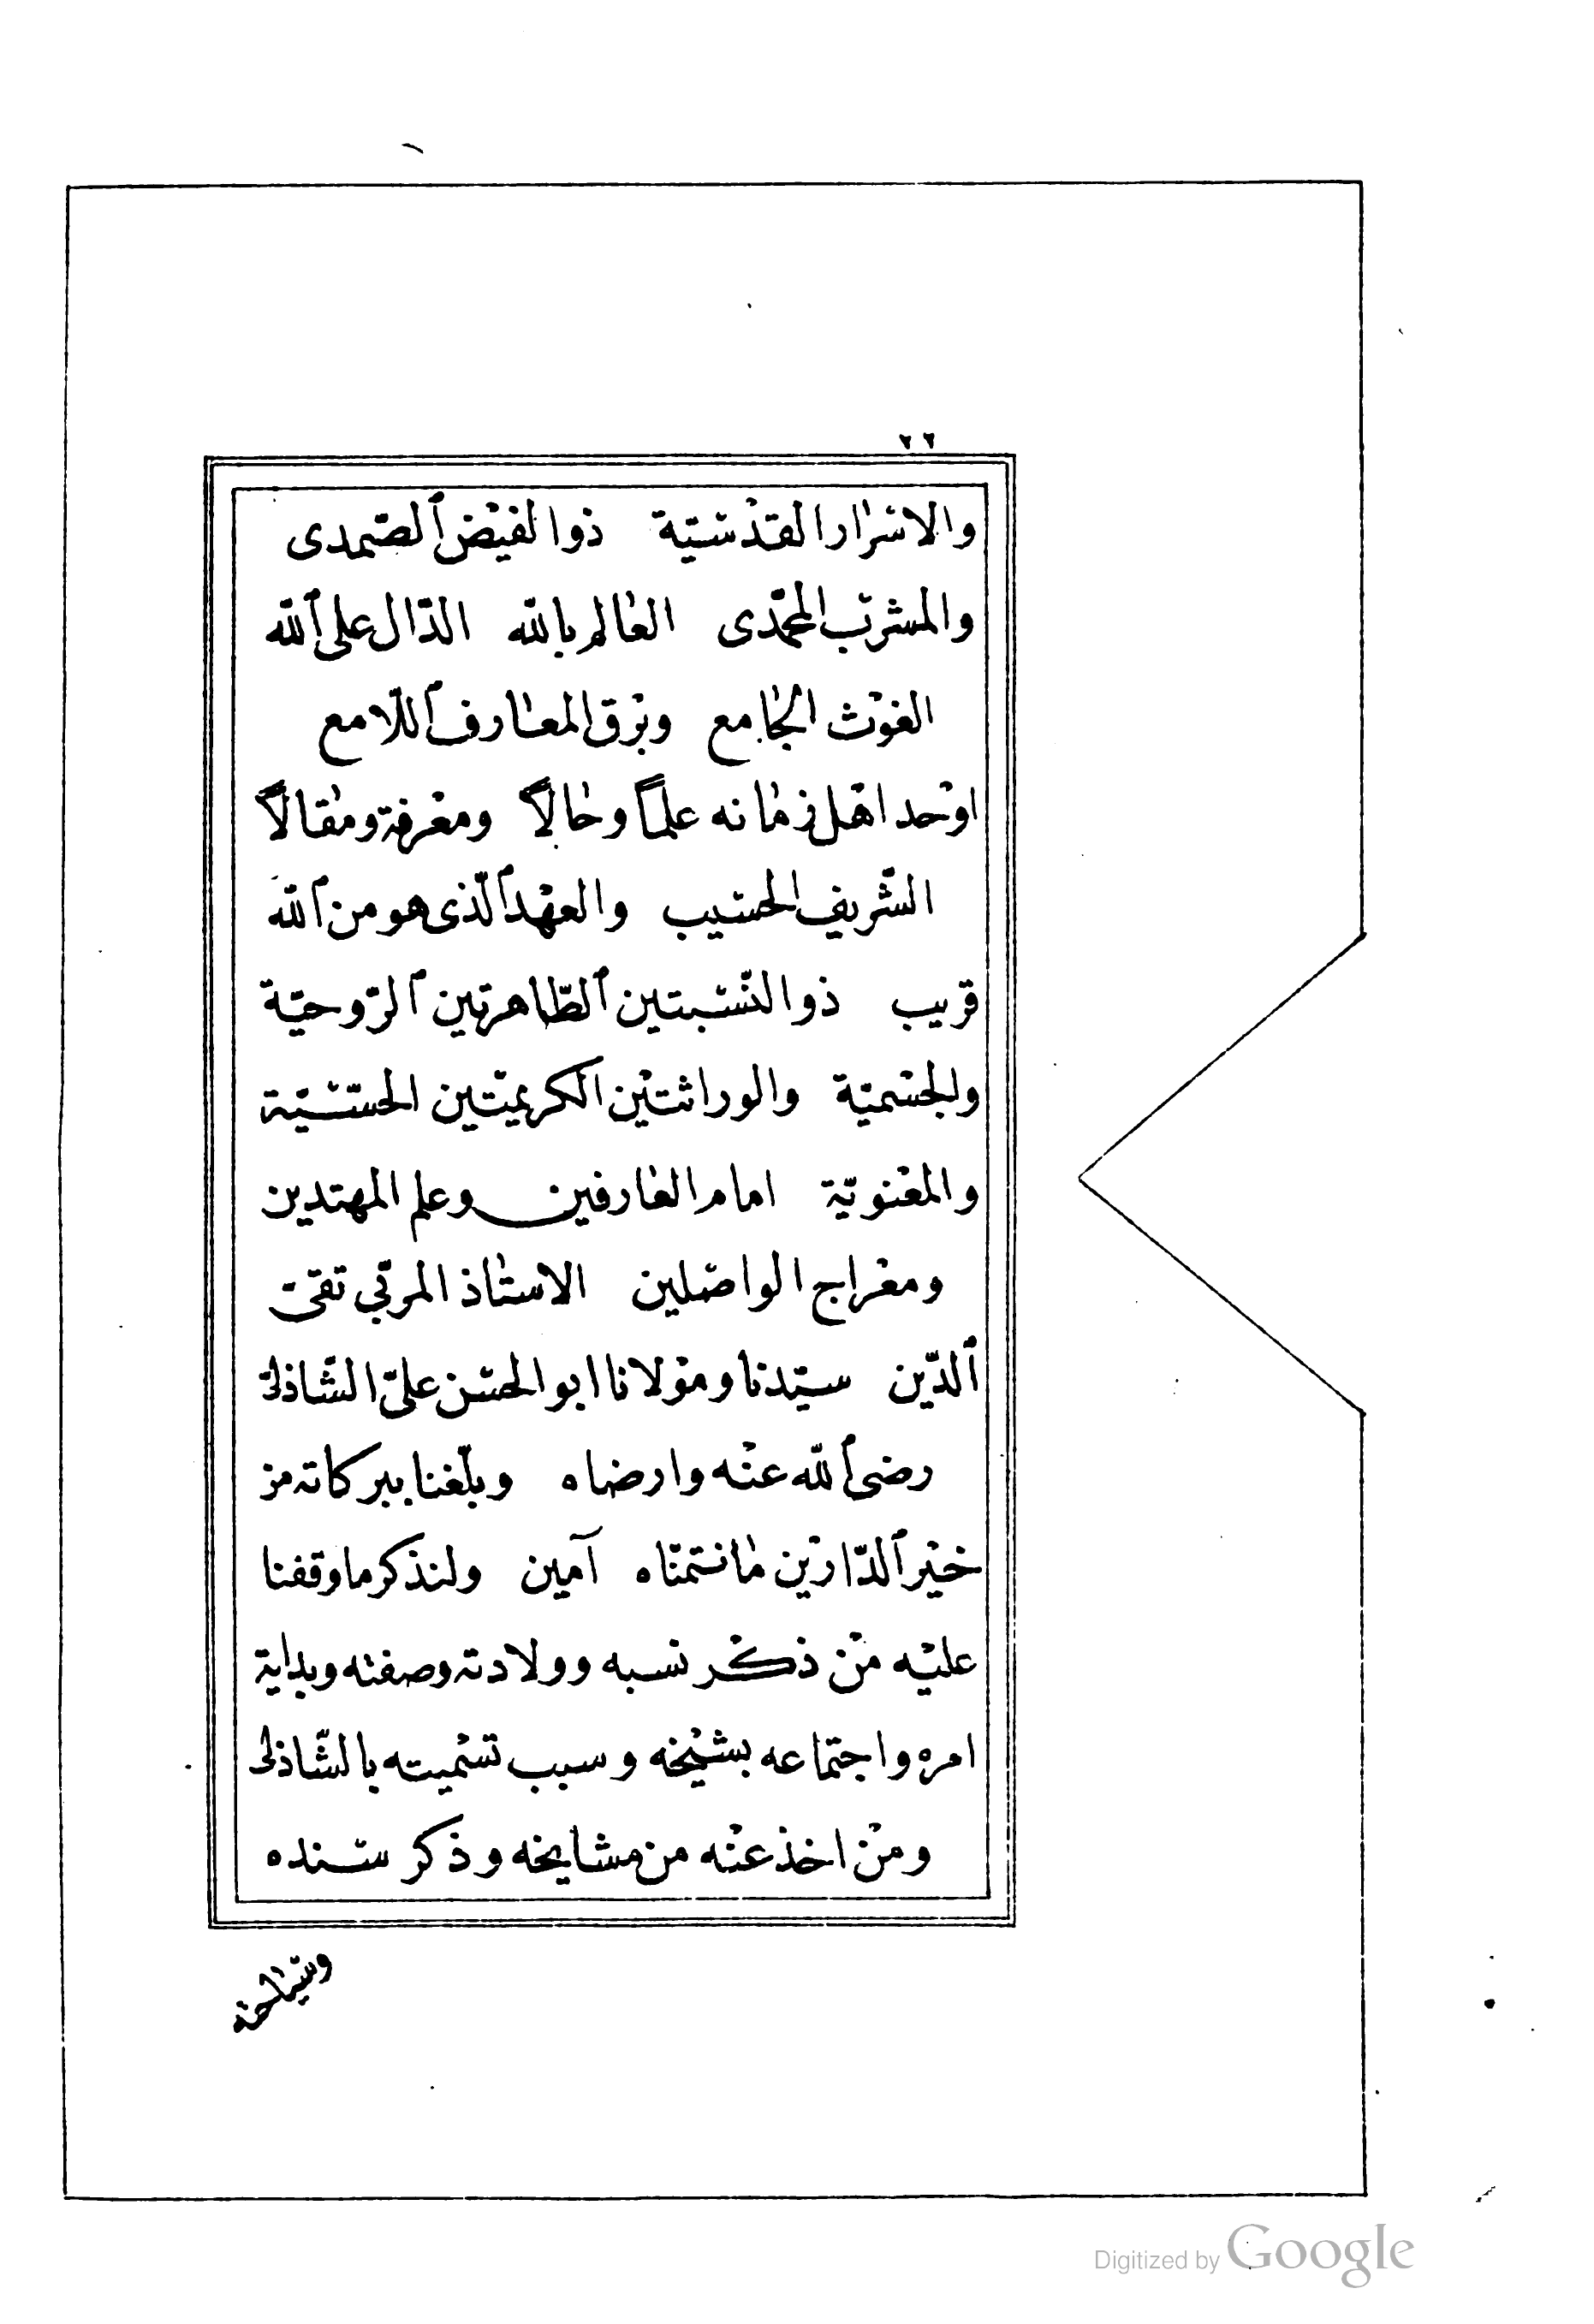 ٢٢
والاسرار القدسيّة ذو الفيض الصّمدى
والمشرب المحمّدى العالم بالله الدّال على الله
الغوث الجامع وبرق المعارف اللّامع
اوحد اهل زمانه علماً وحالاً ومعرفة ومقالاً
الشّريف الحسيب والعهد الّذى هو من الله
قريب ذو النّسبتين الطّاهرتين الرّوحيّة
والجسميّة والوراثتين الكريمتين الحسّيّة
والمعنويّة امام العارفين وعلم المهتدين
ومعراج الواصلين الاستاذ المربّي تقىّ
الدّين سيّدنا ومولانا ابو الحسن علىّ الشّاذلىّ
رضى الله عنه وارضاه وبلّغنا ببركاته من
خير الدّارين ما نتمنّاه آمين ولنذكر ما وقفنا
عليه من ذكر نسبه وولادته وصفته وبداية
امره واجتماعه بشيخه وسبب تسميته بالشّاذلى
ومن اخذ عنه من مشايخه وذكر سنده
Digitized by Google